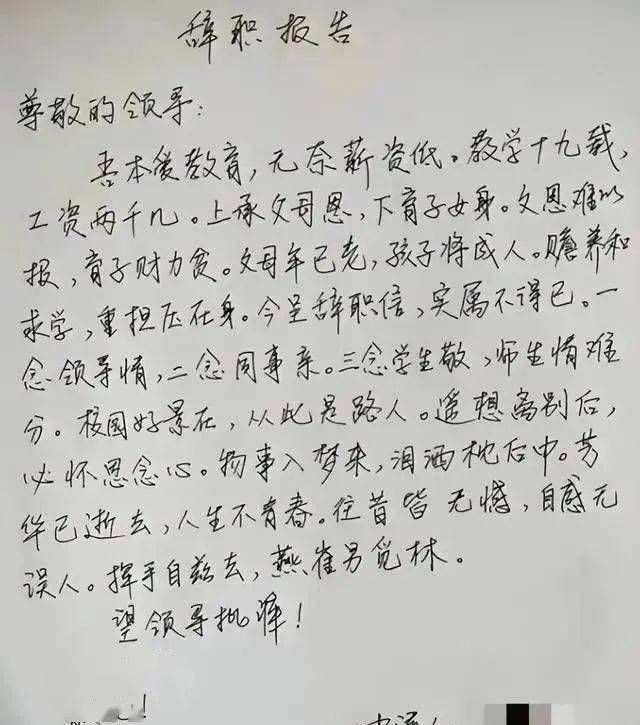 辞职报告
尊敬的领导:
吾本爱教育,无奈薪资低。教学十九载,
工资两千几。上承父母恩,下育子女身。父恩难以
报,育子财力贫。父母年已老,孩子将成人。赡养和
求学,重担压在身。今呈辞职信,实属不得已。一
念领导情,二念同事亲。三念学生敬,师生情难
分。校园好景在,从此是路人。遥想离别后,
必怀思念心。物事入梦来,泪洒枕后中。芳
华已逝去,人生不青春。往昔皆无憾,自感无
误人。挥手自兹去,燕雀另觅林。
望领导批准!